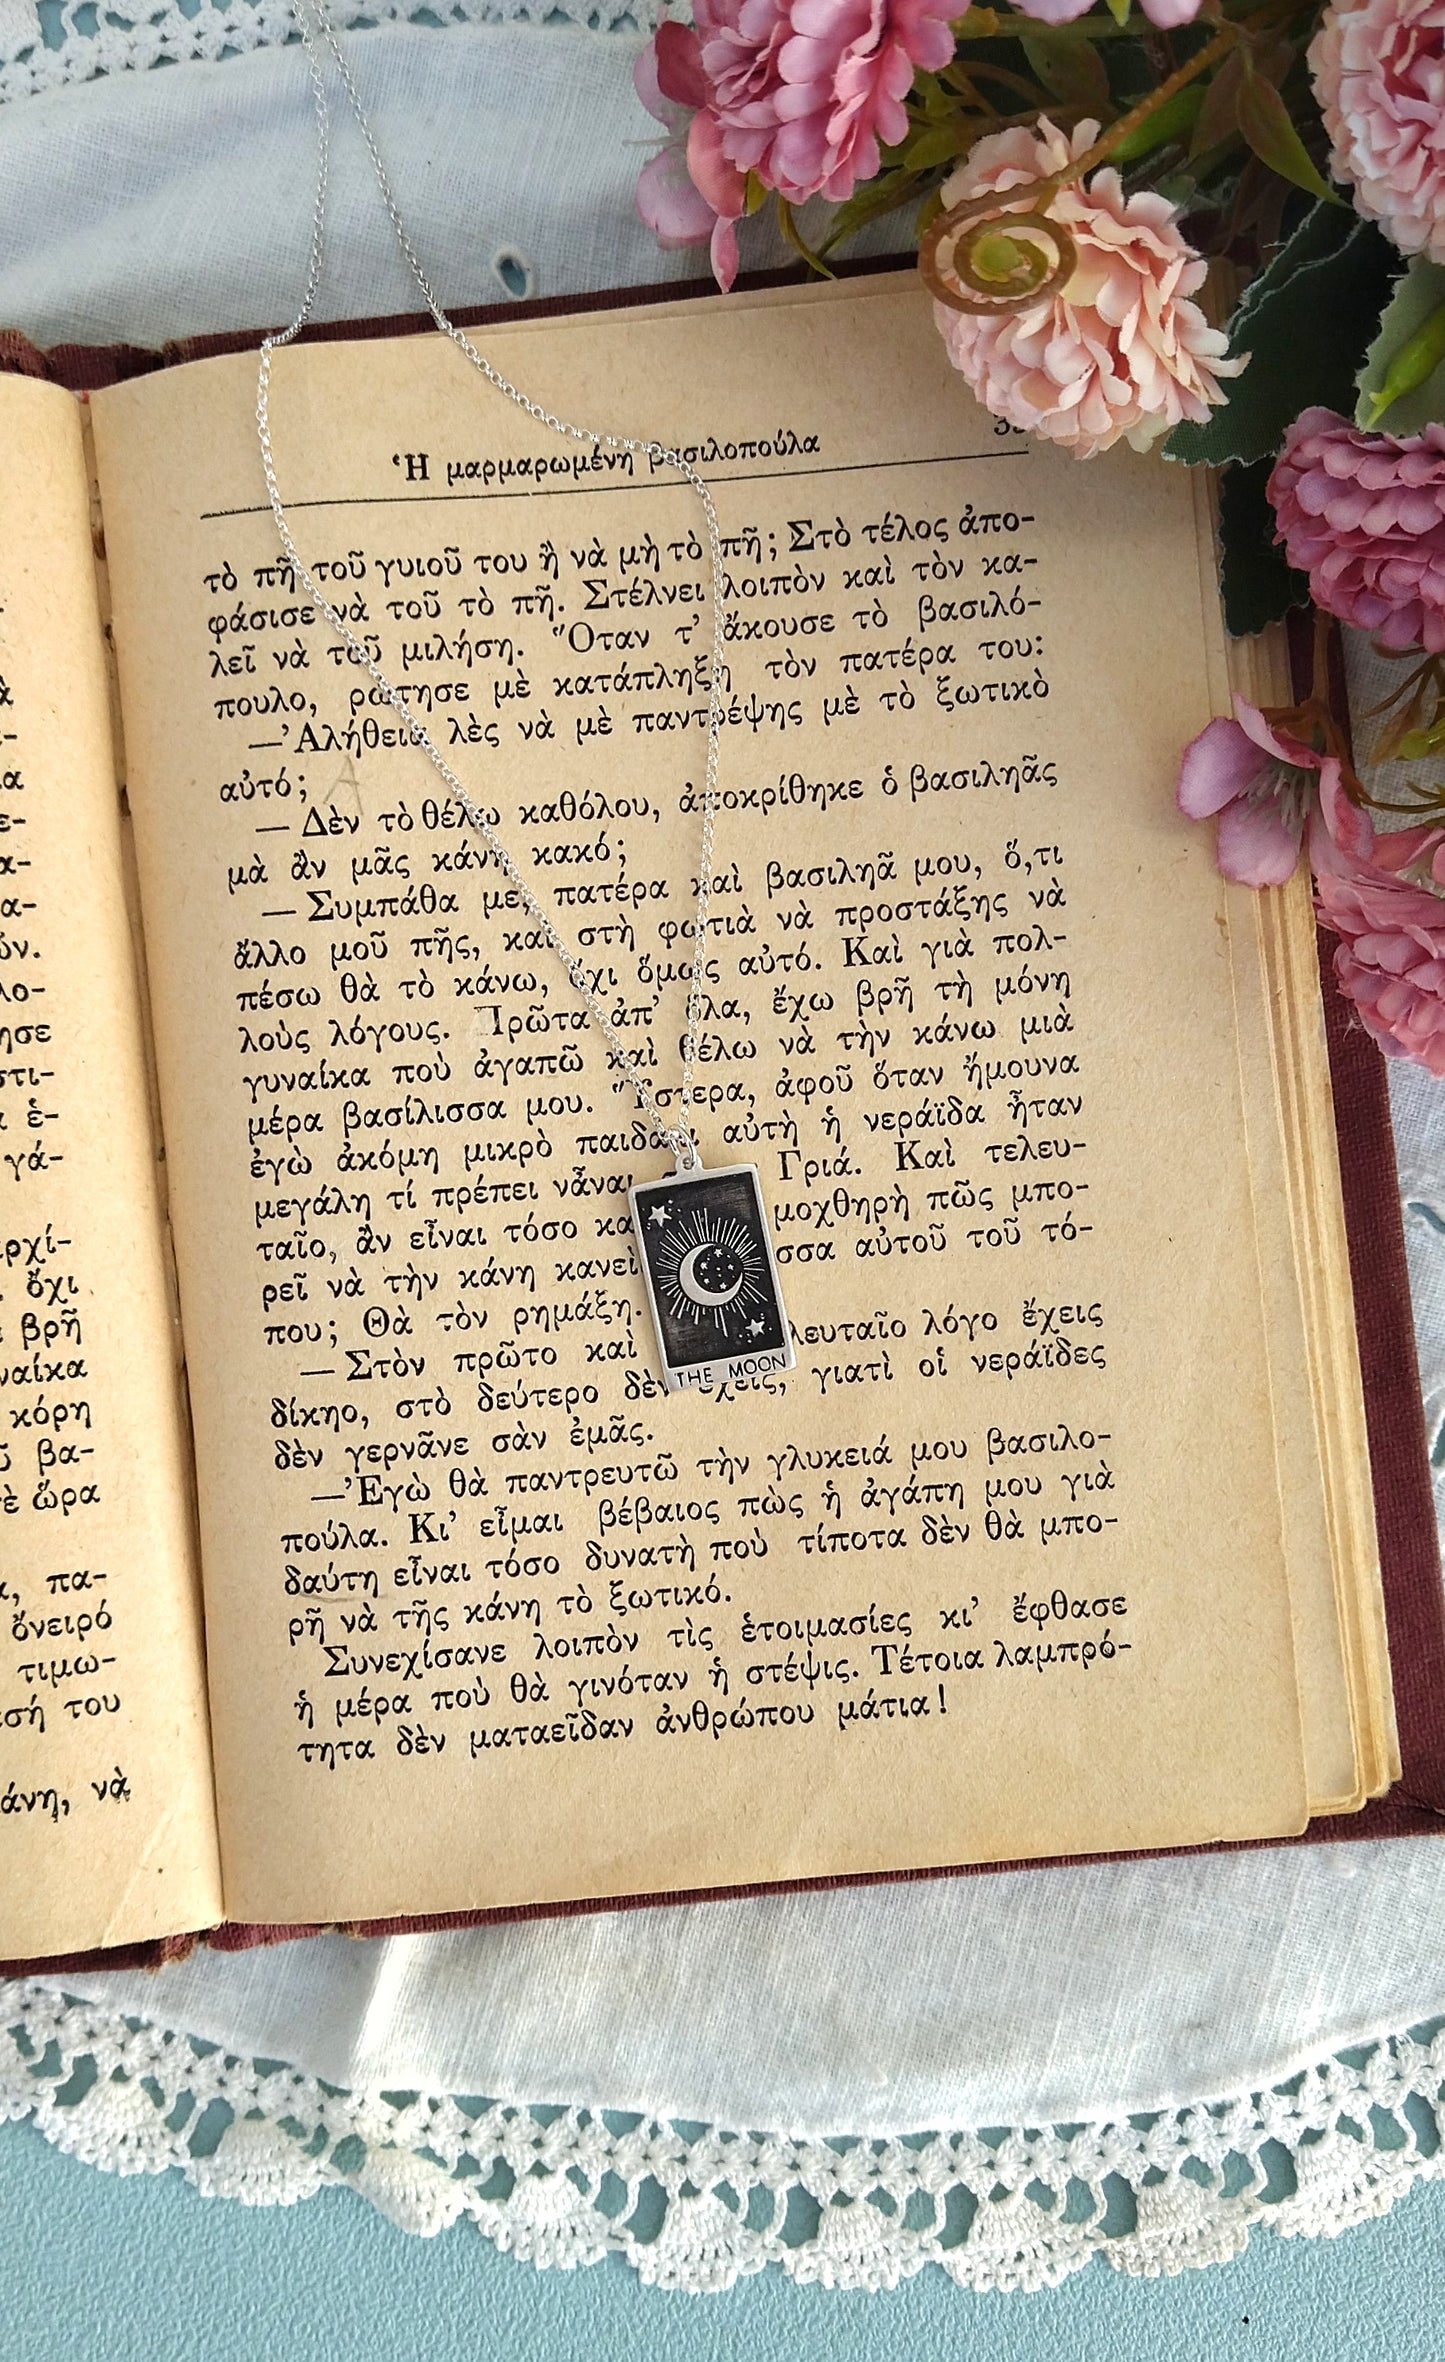 ὰ
ια
ε-
α-
α-
ῶν.
λο-
ησε
στι-
ἑ-
γά-
ρχί-
ὄχι
βρῆ
ναίκα
κόρη
βα-
ὲ ὥρα
πα-
ὄνειρό
τιμω-
σή του
άνη, νὰ
Ἡ μαρμαρωμένη βασιλοπούλα
τὸ πῆ τοῦ γυιοῦ του ἢ νὰ μὴ τὸ πῆ; Στὸ τέλος ἀπο-
φάσισε νὰ τοῦ τὸ πῆ. Στέλνει λοιπὸν καὶ τὸν κα-
λεῖ νὰ τοῦ μιλήση. Ὅταν τ' ἄκουσε τὸ βασιλό-
πουλο, ρώτησε μὲ κατάπληξη τὸν πατέρα του:
—'Αλήθεια λὲς νὰ μὲ παντρέψης μὲ τὸ ξωτικὸ
αὐτό;
— Δὲν τὸ θέλω καθόλου, ἀποκρίθηκε ὁ βασιληᾶς
μὰ ἂν μᾶς κάνη κακό;
— Συμπάθα με, πατέρα καὶ βασιληᾶ μου, ὅ,τι
ἄλλο μοῦ πῆς, καὶ στὴ φωτιὰ νὰ προστάξης νὰ
πέσω θὰ τὸ κάνω, ὄχι ὅμως αὐτό. Καὶ γιὰ πολ-
λοὺς λόγους. Πρῶτα ἀπ' ὅλα, ἔχω βρῆ τὴ μόνη
γυναίκα ποὺ ἀγαπῶ καὶ θέλω νὰ τὴν κάνω μιὰ
μέρα βασίλισσα μου. Ὕστερα, ἀφοῦ ὅταν ἤμουνα
ἐγὼ ἀκόμη μικρὸ παιδάκι αὐτὴ ἡ νεράϊδα ἦταν
μεγάλη τί πρέπει νἆναι Γριά. Καὶ τελευ-
ταῖο, ἂν εἶναι τόσο κα μοχθηρὴ πῶς μπο-
ρεῖ νὰ τὴν κάνη κανεὶ σσα αὐτοῦ τοῦ τό-
που; Θὰ τὸν ρημάξη.
— Στὸν πρῶτο καὶ λευταῖο λόγο ἔχεις
δίκηο, στὸ δεύτερο δὲν ἔχεις, γιατὶ οἱ νεράϊδες
δὲν γερνᾶνε σὰν ἐμᾶς.
—'Εγὼ θὰ παντρευτῶ τὴν γλυκειά μου βασιλο-
πούλα. Κι' εἶμαι βέβαιος πὼς ἡ ἀγάπη μου γιὰ
δαύτη εἶναι τόσο δυνατὴ ποὺ τίποτα δὲν θὰ μπο-
ρῆ νὰ τῆς κάνη τὸ ξωτικό.
Συνεχίσανε λοιπὸν τὶς ἑτοιμασίες κι' ἔφθασε
ἡ μέρα ποὺ θὰ γινόταν ἡ στέψις. Τέτοια λαμπρό-
τητα δὲν ματαεῖδαν ἀνθρώπου μάτια!
THE MOON